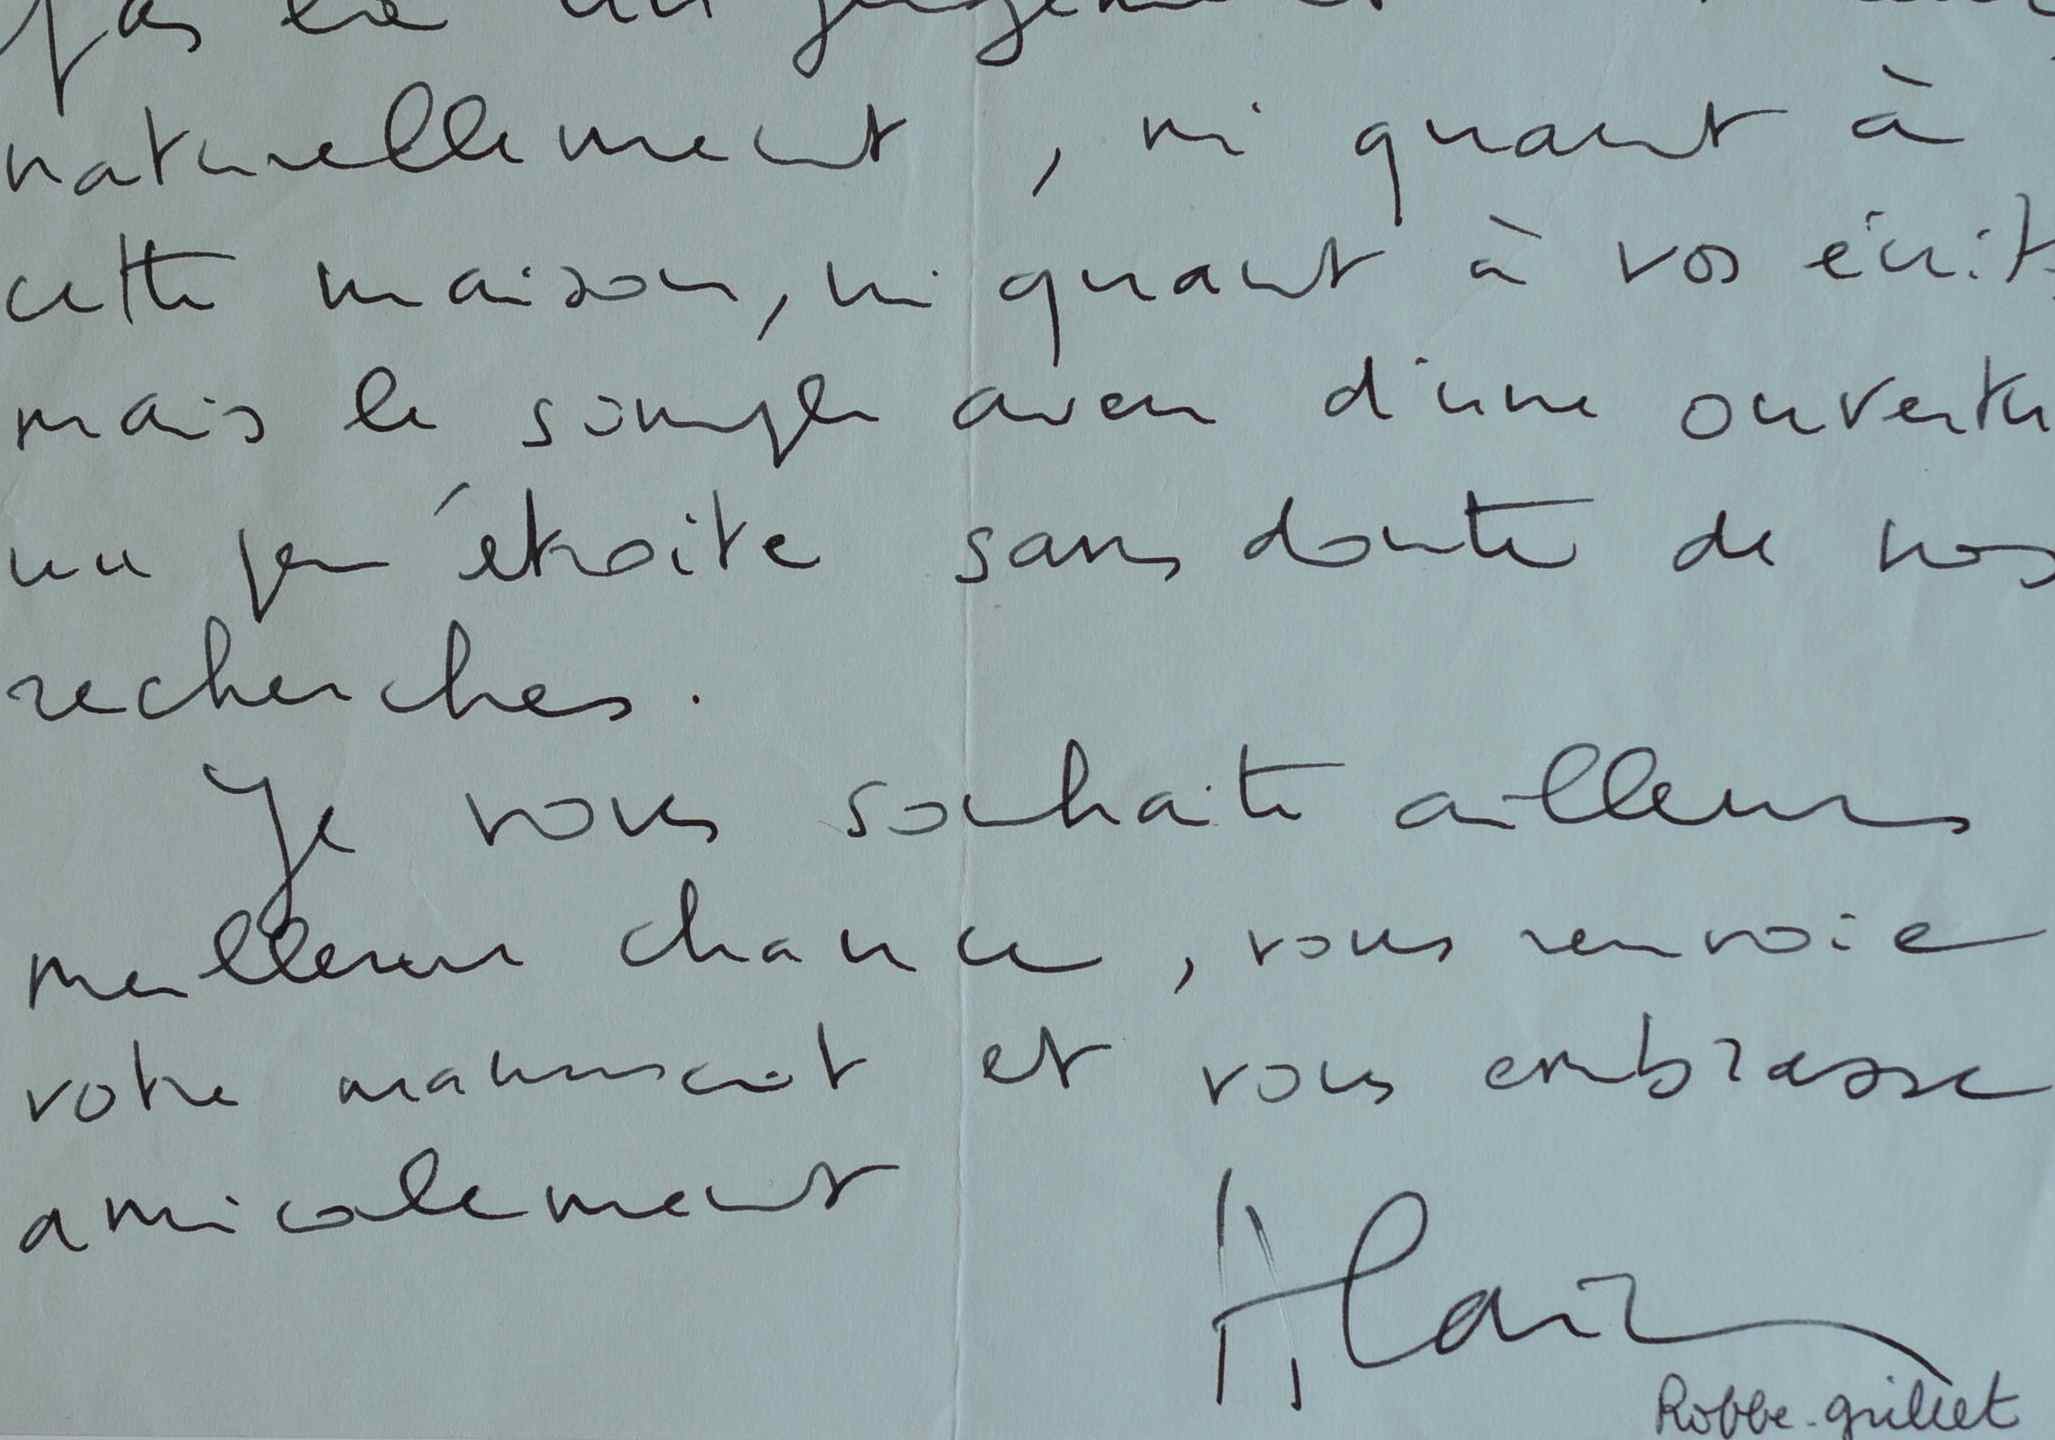 pas là un jugement
naturellement, ni quant à
cette maison, ni quant à vos écrits,
mais le simple aveu d'une ouvertu
un peu étroite sans doute de nos
recherches.
Je vous souhaite ailleurs
meilleure chance, vous renvoie
votre manuscrit et vous embrasse
amicalement
Alain
Robbe-grillet